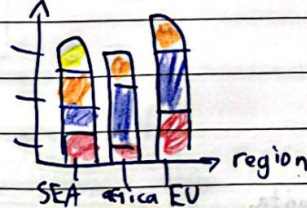 region
SEA africa EU